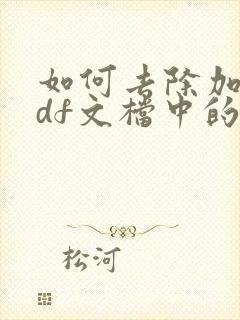 如何去除加
df文檔中的
松河